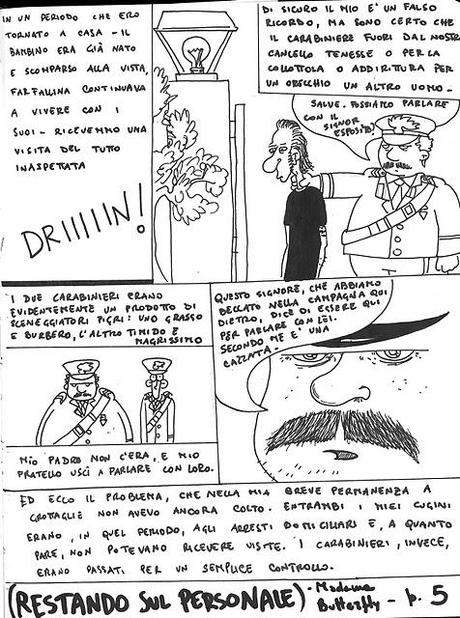 IN UN PERIODO CHE ERO
TORNATO A CASA - IL
BAMBINO ERA GIÀ NATO
E SCOMPARSO ALLA VISTA,
FARFALLINA CONTINUAVA
A VIVERE CON I
SUOI - RICEVEMMO UNA
VISITA DEL TUTTO
INASPETTATA
DRIIIIIN!
DI SICURO IL MIO E' UN FALSO
RICORDO, MA SONO CERTO CHE
IL CARABINIERE FUORI DAL NOSTRO
CANCELLO TENESSE O PER LA
COLLOTTOLA O ADDIRITTURA PER
UN ORECCHIO UN ALTRO UOMO -
SALVE. POSSIAMO PARLARE
CON IL
SIGNOR
ESPOSITO?
I DUE CARABINIERI ERANO
EVIDENTEMENTE UN PRODOTTO DI
SCENEGGIATORI PIGRI: UNO GRASSO
E BURBERO, L'ALTRO TIMIDO E
MAGRISSIMO
MIO PADRE NON C'ERA, E MIO
FRATELLO USCÌ A PARLARE CON LORO.
QUESTO SIGNORE, CHE ABBIAMO
BECCATO NELLA CAMPAGNA QUI
DIETRO, DICE DI ESSERE QUI
PER PARLARE CON LEI.
SECONDO ME E' UNA
CAZZATA.
ED ECCO IL PROBLEMA, CHE NELLA MIA BREVE PERMANENZA A
GROTTAGLIE NON AVEVO ANCORA COLTO. ENTRAMBI I MIEI CUGINI
ERANO, IN QUEL PERIODO, AGLI ARRESTI DOMICILIARI E, A QUANTO
PARE, NON POTEVANO RICEVERE VISITE. I CARABINIERI, INVECE,
ERANO PASSATI PER UN SEMPLICE CONTROLLO.
(RESTANDO SUL PERSONALE) - Madama
Butterfly - p. 5